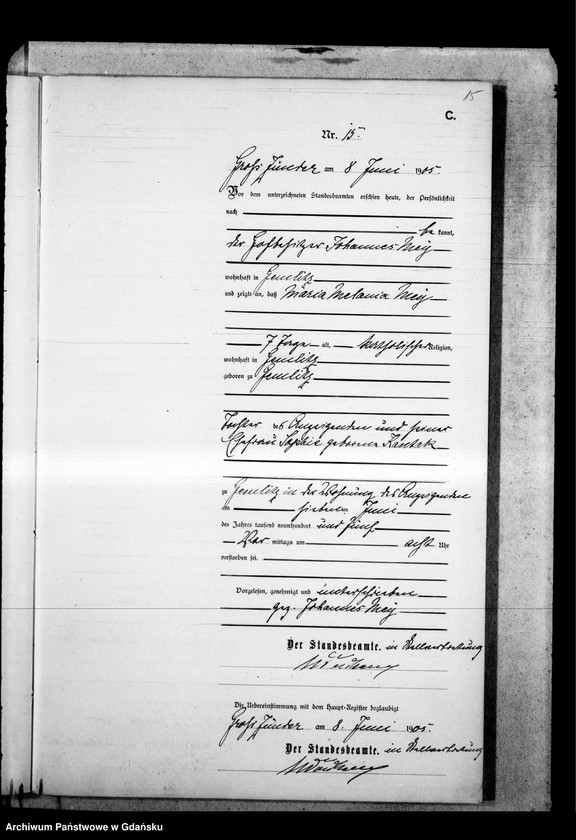 15
C.
Nr. 15.
Groß Zünder am 8 Juni 1905.
Vor dem unterzeichneten Standesbeamten erschien heute, der Persönlichkeit
nach
be kannt,
der Hofbesitzer Johannes Mey
wohnhaft in Gemlitz
und zeigte an, daß Maria Melania Mey
7 Tage alt, katholischer Religion,
wohnhaft in Gemlitz
geboren zu Gemlitz
Tochter des Anzeigenden und seiner
Ehefrau Sophie geborene
zu Gemlitz in der Wohnung des Anzeigenden
am sieben Juni
des Jahres tausend neunhundert und fünf
Vor mittags um acht Uhr
verstorben sei.
Vorgelesen, genehmigt und unterschrieben
gez. Johannes Mey
Der Standesbeamte. in Stellvertretung
Die Uebereinstimmung mit dem Haupt-Register beglaubigt
Groß Zünder am 8. Juni 1905.
Der Standesbeamte. in Stellvertretung
Archiwum Państwowe w Gdańsku